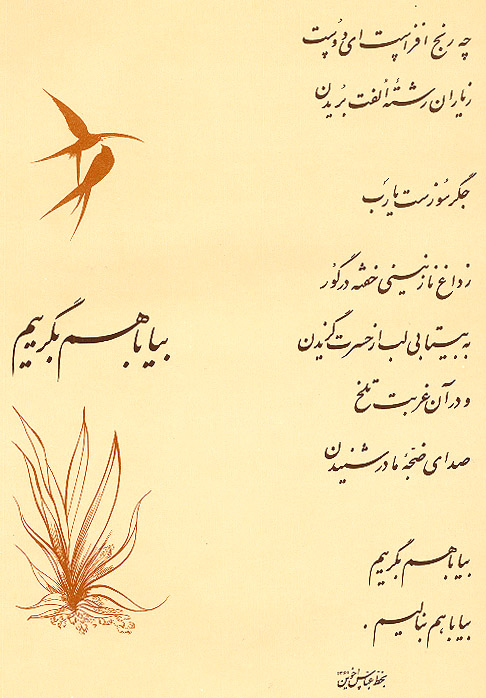 چه رنج افزاست ای دوست
ز یاران رشتهٔ اُلفت بُریدن
جگر سُوزست یا رَب
ز داغ نازنینی خفته در گور
به بیتابی لب از حسرت گزیدن
و در آن غربت تلخ
صدای ضجّهٔ مادر شنیدن
بیا با هم بگرییم
بیا با هم بگرییم
بیا با هم بنالیم .
بخط عباس اخوین